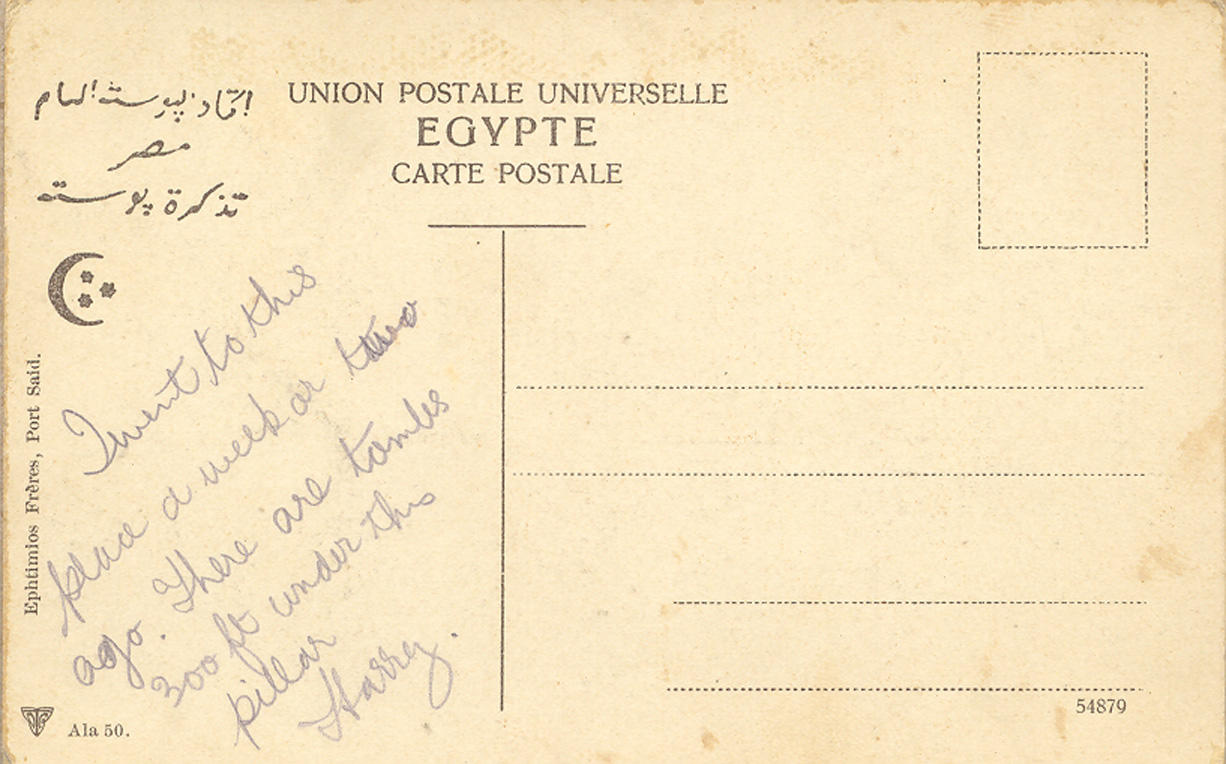 اتحاد البوستة العام
مصر
تذكرة بوسته
UNION POSTALE UNIVERSELLE
EGYPTE
CARTE POSTALE
I went to this
place a week or two
ago. There are tombs
300 ft under this
pillar
Harry.
Ephtimios Frères, Port Said.
Ala 50.
54879